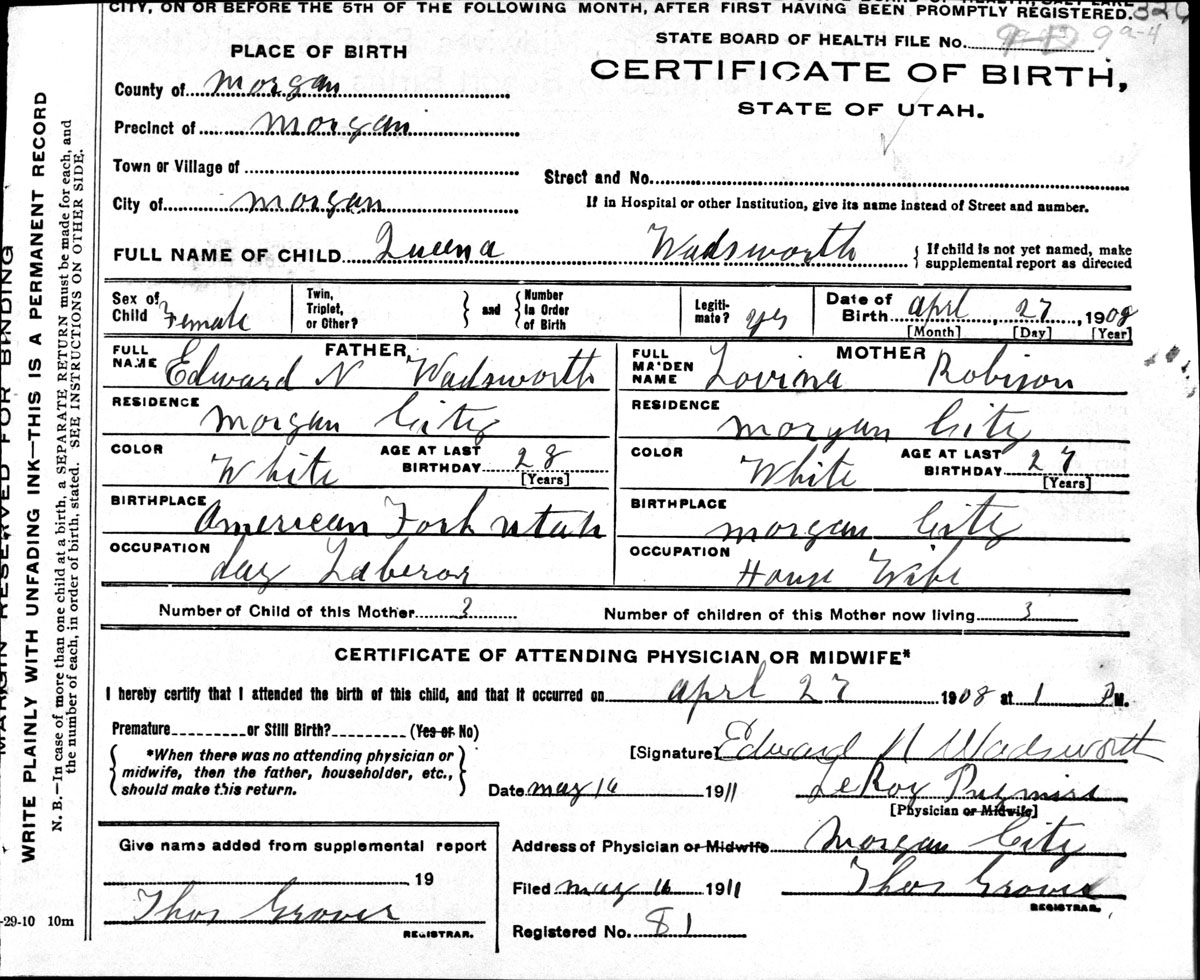 CITY, ON OR BEFORE THE 5TH OF THE FOLLOWING MONTH, AFTER FIRST HAVING BEEN PROMPTLY REGISTERED.
STATE BOARD OF HEALTH FILE No. 9a-4
PLACE OF BIRTH
CERTIFICATE OF BIRTH,
STATE OF UTAH.
County of Morgan
Precinct of Morgan
Town or Village of
Street and No.
City of Morgan
If in Hospital or other Institution, give its name instead of Street and number.
FULL NAME OF CHILD Queena Wadsworth { If child is not yet named, make
supplemental report as directed
Sex of Child Female
Twin, Triplet, or Other? } and { Number in Order of Birth
Legiti-mate? yes
Date of Birth April 27, 1908
[Month] [Day] [Year]
FATHER
FULL NAME Edward N Wadsworth
RESIDENCE Morgan City
COLOR White
AGE AT LAST BIRTHDAY 28
[Years]
BIRTHPLACE American Fork Utah
OCCUPATION day Laberor
MOTHER
FULL MAIDEN NAME Lovina Robison
RESIDENCE Morgan City
COLOR White
AGE AT LAST BIRTHDAY 27
[Years]
BIRTHPLACE Morgan City
OCCUPATION House Wife
Number of Child of this Mother 3
Number of children of this Mother now living 3
CERTIFICATE OF ATTENDING PHYSICIAN OR MIDWIFE*
I hereby certify that I attended the birth of this child, and that it occurred on April 27 1908 at 1 P M.
Premature or Still Birth? (Yes or No)
*When there was no attending physician or
midwife, then the father, householder, etc.,
should make this return.
[Signature] Edward N Wadsworth
Date May 16 1911
LeRoy
[Physician or Midwife]
Give name added from supplemental report
19
Thos Grover
REGISTRAR.
Address of Physician or Midwife Morgan City
Filed May 16 1911 Thos Grover
REGISTRAR.
Registered No. 81
-29-10 10m
MARGIN RESERVED FOR BINDING
WRITE PLAINLY WITH UNFADING INK—THIS IS A PERMANENT RECORD
N. B.—In case of more than one child at a birth, a SEPARATE RETURN must be made for each, and
the number of each, in order of birth, stated. SEE INSTRUCTIONS ON OTHER SIDE.